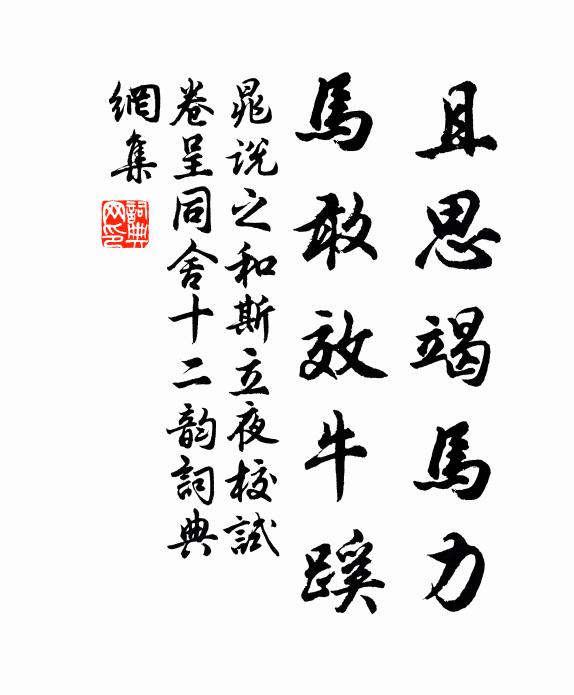 且思竭馬力
馬敢效牛蹊
晁說之和斯立夜校試
卷呈同舍十二韵詞典
網集
詞典
网印